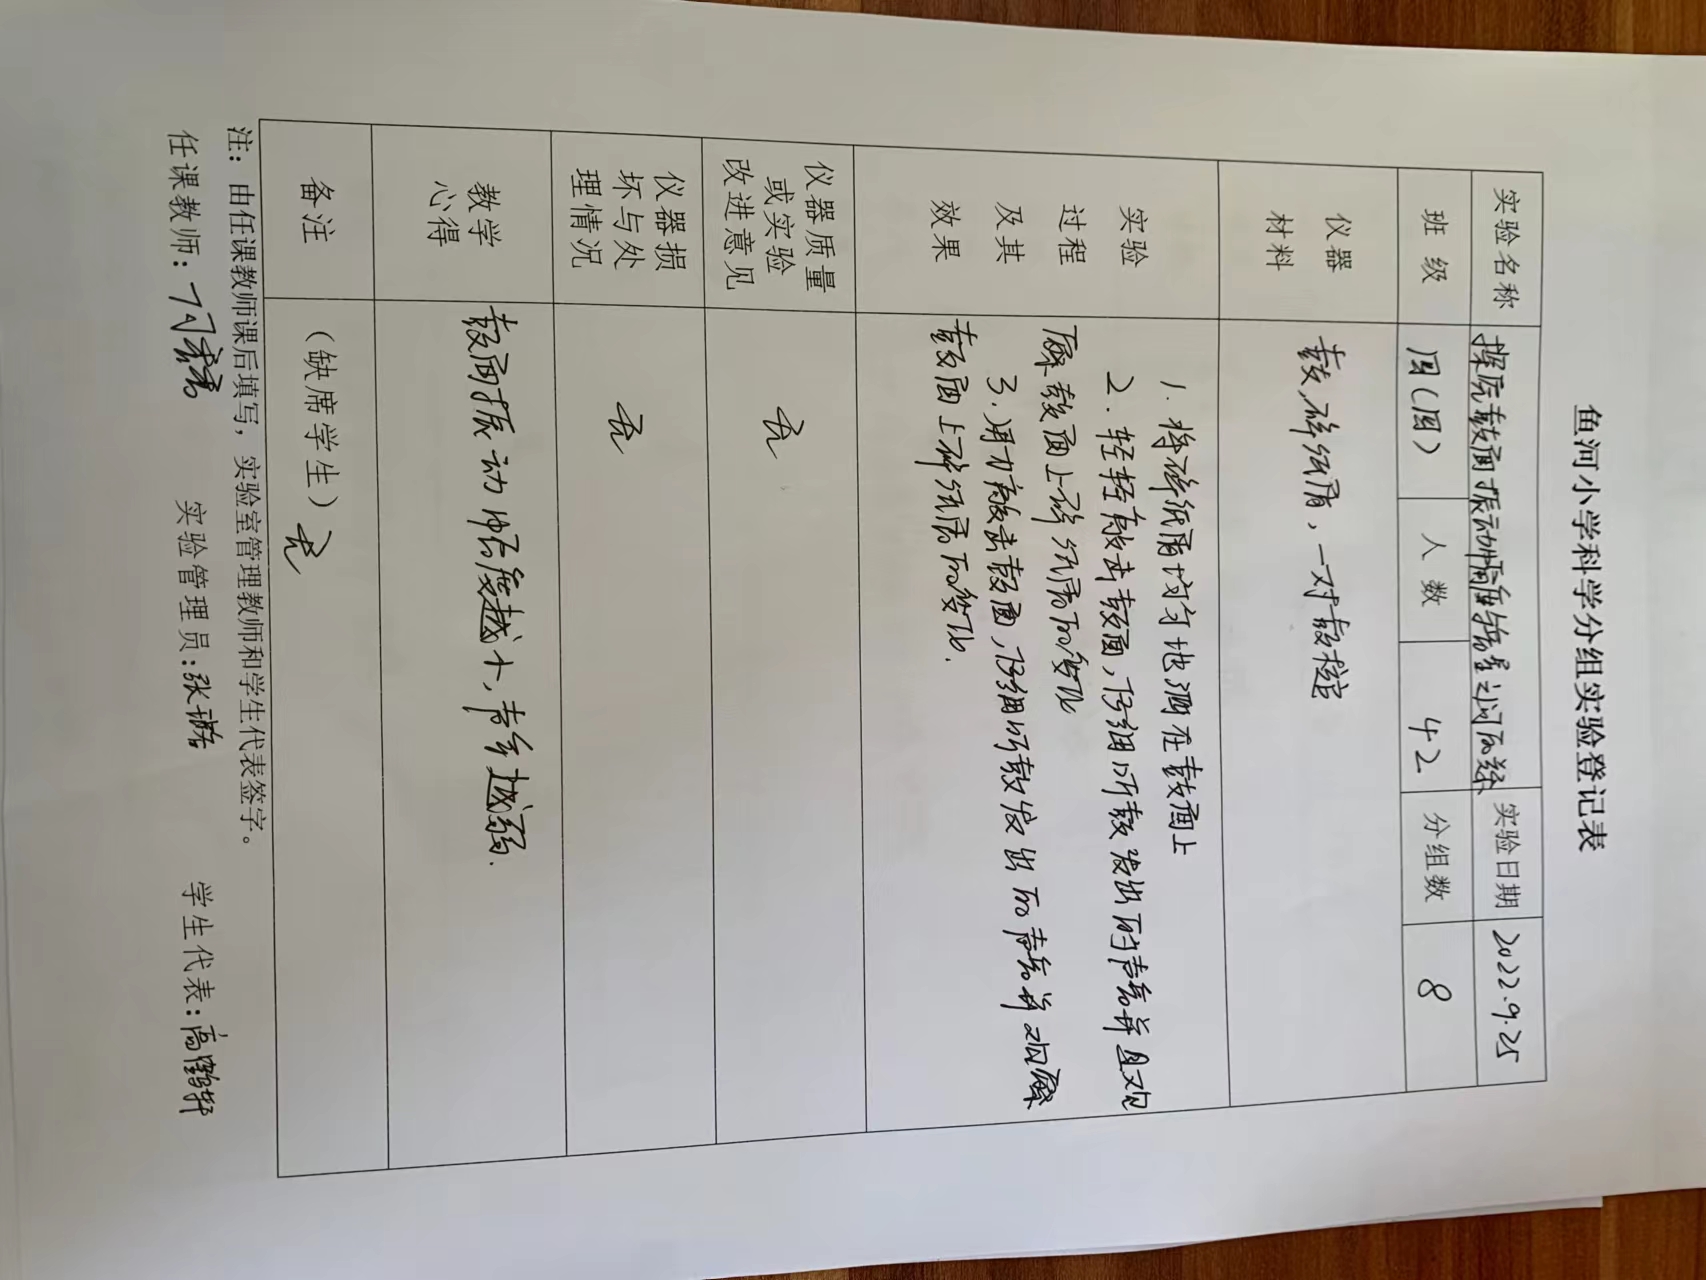 鱼河小学科学分组实验登记表
实验名称 探究鼓面振动幅度与音量之间的 实验日期 2022.9.25
班 级 四(四) 人 数 42 分组数 8
仪器
材料
鼓,碎纸屑,一对鼓槌
实验
过程
及其
效果
1. 将碎纸屑均匀地洒在鼓面上
2. 轻轻敲击鼓面,仔细听鼓发出的声音并且观
察鼓面上碎纸屑的变化
3. 用力敲击鼓面,仔细听鼓发出的声音并观察
鼓面上碎纸屑的变化.
仪器质量
或实验
改进意见
无
仪器损
坏与处
理情况
无
教学
心得
鼓面振动幅度越小,声音越弱.
备注
(缺席学生) 无
注:由任课教师课后填写,实验室管理教师和学生代表签字。
任课教师: 实验管理员:张 学生代表:高